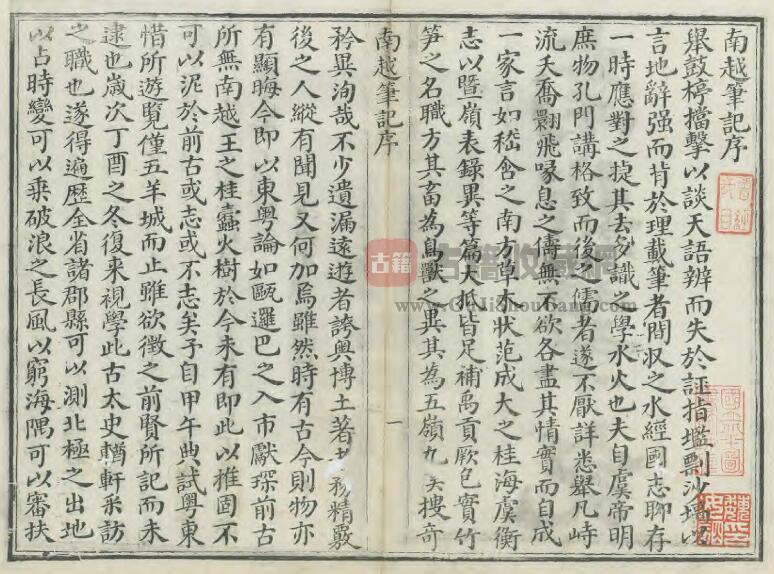 南越筆記序
舉鼓桴擋擊以談天語辨而失於誣指壒剽沙壇以
言地辭强而背於理載筆者間収之水經國志聊存
一時應對之捷其去多識之學水火也夫自虞帝明
庶物孔門講格致而後之儒者遂不厭詳悉舉凡峙
流夭喬翾飛喙息之儔無不欲各盡其情實而自成
一家言如嵇含之南方草木狀范成大之桂海虞衡
志以暨嶺表錄異等篇大抵皆足補禹貢厥包實竹
笋之名職方其畜為鳥獸之異其為五嶺九 搜奇
南越筆記序
一
矜異洵哉不少遺漏遠遊者誇奧博土著者務精覈
後之人縱有聞見又何加焉雖然時有古今則物亦
有顯晦今即以東粵論如甌邏巴之入市獻琛前古
所無南越王之桂蠹火樹於今未有即此以推固不
可以泥於前古或志或不志矣予自甲午典試粵東
惜所遊覽僅五羊城而止雖欲徵之前賢所記而未
逮也歲次丁酉之冬復来視學此古太史輶軒采訪
之職也遂得遍歷全省諸郡縣可以測北極之出地
以占時變可以乘破浪之長風以窮海隅可以審扶
古籍
古籍收藏網
www.GuJiShouCang.com